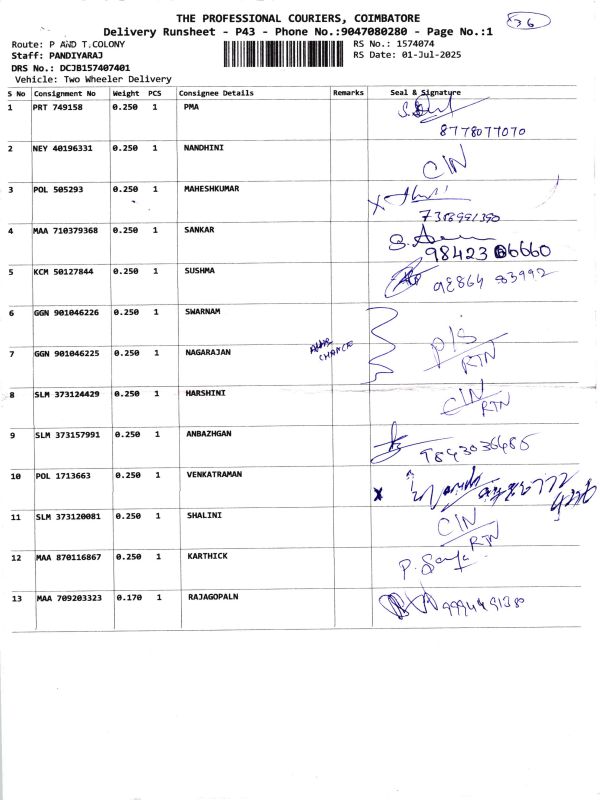 THE PROFESSIONAL COURIERS, COIMBATORE
36
Delivery Runsheet - P43 - Phone No.:9047080280 - Page No.:1
Route: P AND T.COLONY
RS No.: 1574074
Staff: PANDIYARAJ
RS Date: 01-Jul-2025
DRS No.: DCJB157407401
Vehicle: Two Wheeler Delivery
S No Consignment No Weight PCS Consignee Details Remarks Seal & Signature
1 PRT 749158 0.250 1 PMA
8778077070
2 NEY 40196331 0.250 1 NANDHINI C/N
3 POL 505293 0.250 1 MAHESHKUMAR X
7358991390
4 MAA 710379368 0.250 1 SANKAR
98423 06660
5 KCM 50127844 0.250 1 SUSHMA 98864 83992
6 GGN 901046226 0.250 1 SWARNAM
7 GGN 901046225 0.250 1 NAGARAJAN CHANCE P/S
RTN
8 SLM 373124429 0.250 1 HARSHINI C/N
RTN
9 SLM 373157991 0.250 1 ANBAZHGAN
9843036485
10 POL 1713663 0.250 1 VENKATRAMAN X
11 SLM 373120081 0.250 1 SHALINI C/N
RTN
12 MAA 870116867 0.250 1 KARTHICK
13 MAA 709203323 0.170 1 RAJAGOPALN